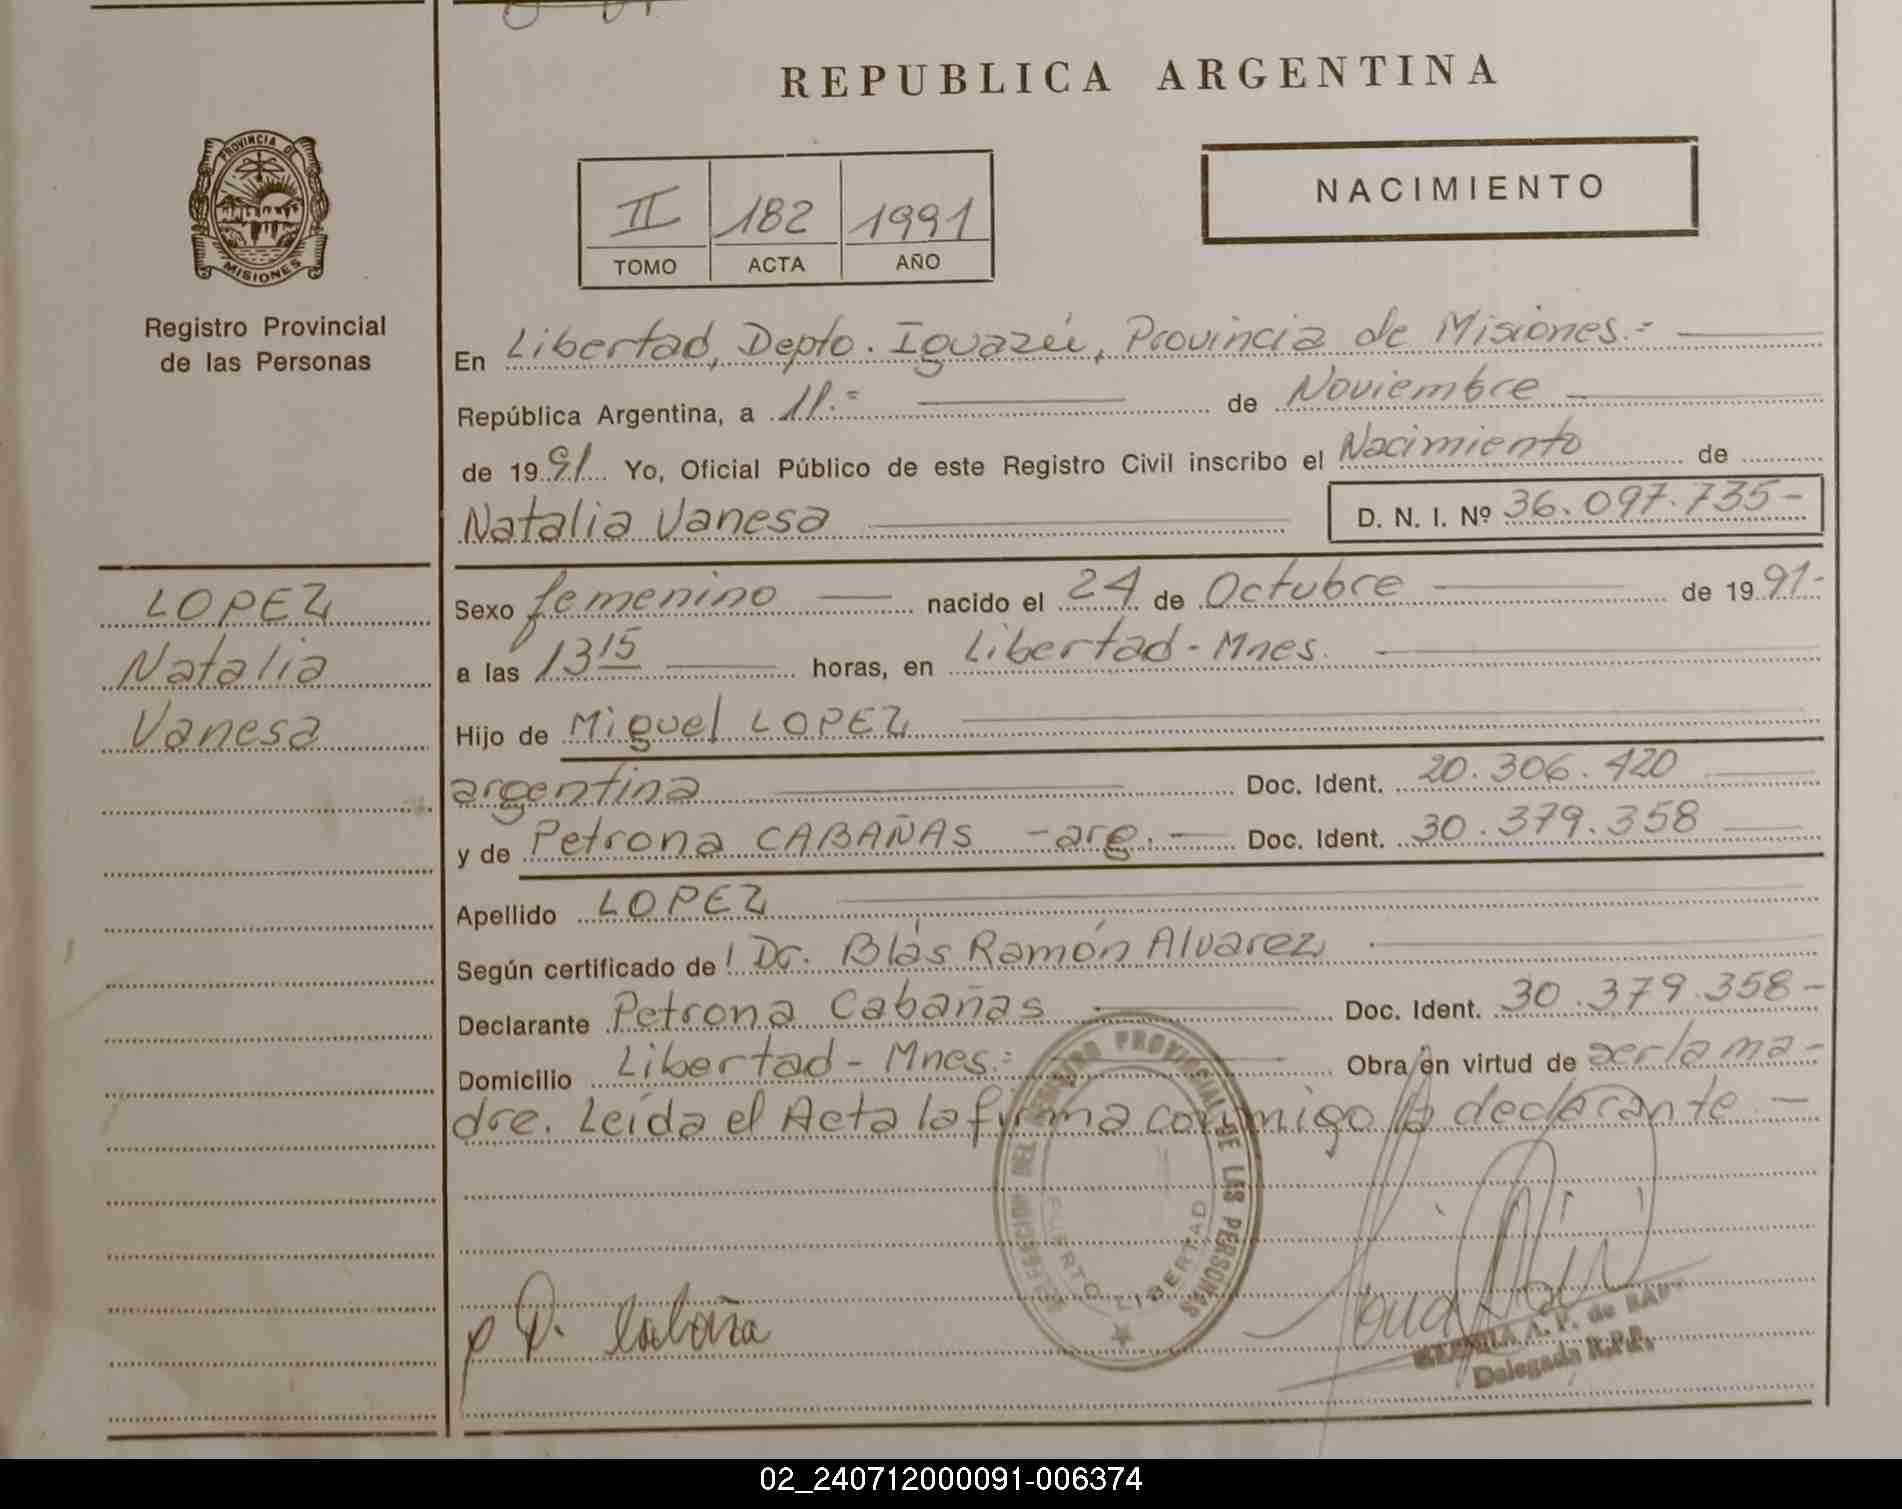 REPUBLICA ARGENTINA
PROVINCIA DE
MISIONES
Registro Provincial
de las Personas
II 182 1991
TOMO ACTA AÑO
NACIMIENTO
En Libertad, Depto. Iguazú, Provincia de Misiones.=
República Argentina, a 11.= de Noviembre
de 1991 Yo, Oficial Público de este Registro Civil inscribo el Nacimiento de
Natalia Vanesa D. N. I. Nº 36.097.735-
LOPEZ
Natalia
Vanesa
Sexo femenino nacido el 24 de Octubre de 1991-
a las 13 15 horas, en Libertad-Mnes.
Hijo de Miguel LOPEZ
argentina Doc. Ident. 20.306.420
y de Petrona CABAÑAS -arg.- Doc. Ident. 30.379.358
Apellido LOPEZ
Según certificado de Dr. Blás Ramón Alvarez
Declarante Petrona Cabañas Doc. Ident. 30.379.358-
Domicilio Libertad-Mnes: Obra en virtud de ser la ma-
dre. Leída el Acta la firma conmigo la declarante.-
DELEGACION DEL REGISTRO PROVINCIAL DE LAS PERSONAS
PUERTO LIBERTAD
P. Cabaña
A. F. de
Delegada R.P.P.
02_240712000091-006374